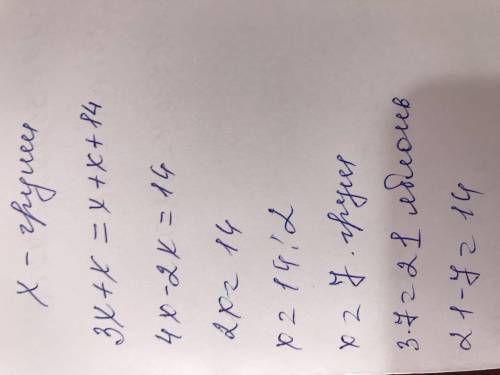 x - груши
3x + x = x + x + 14
4x - 2x = 14
2x = 14
x = 14 : 2
x = 7 груш
3·7 = 21 яблоков
21 - 7 = 14